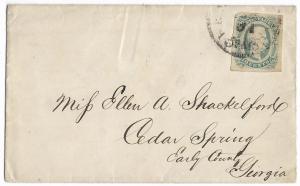 Miss Ellen A. Shackelford
Cedar Spring
Early County
Georgia